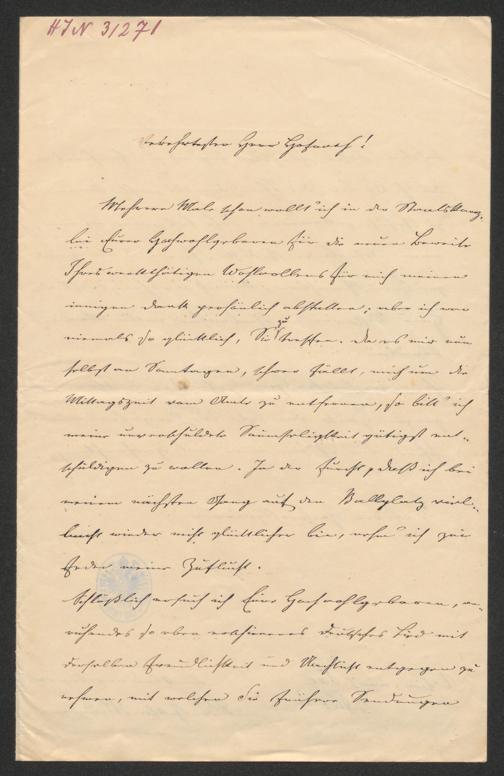 HIN 31271
Verehrtester Herr Hofrath!
Mehrere Male schon wollt' ich in der Staatskanz-
lei Eurer Hochwohlgeboren für die neuen Beweise
Ihres werkthätigen Wohlwollens für mich meinen
innigen Dank persönlich abstatten; aber ich war
niemals so glücklich, Sie zu treffen. Da es mir nun
selbst an Samstagen, schwer fällt, mich um die
Mittagszeit vom Amte zu entfernen, so bitt' ich
meine unverschuldete Saumseligkeit gütigst ent-
schuldigen zu wollen. In der Furcht, daß ich bei
meinem nächsten Gang auf den Ballplatz viel-
leicht wieder nicht glücklicher bin, nehm' ich zur
Feder meine Zuflucht.
Schlüßlich ersuch ich Eure Hochwohlgeboren,
ruhendes so eben erschienenes deutsches Lied mit
derselben Freundlichkeit und Nachsicht entgegen zu
nehmen, mit welchen Sie frühere Sendungen